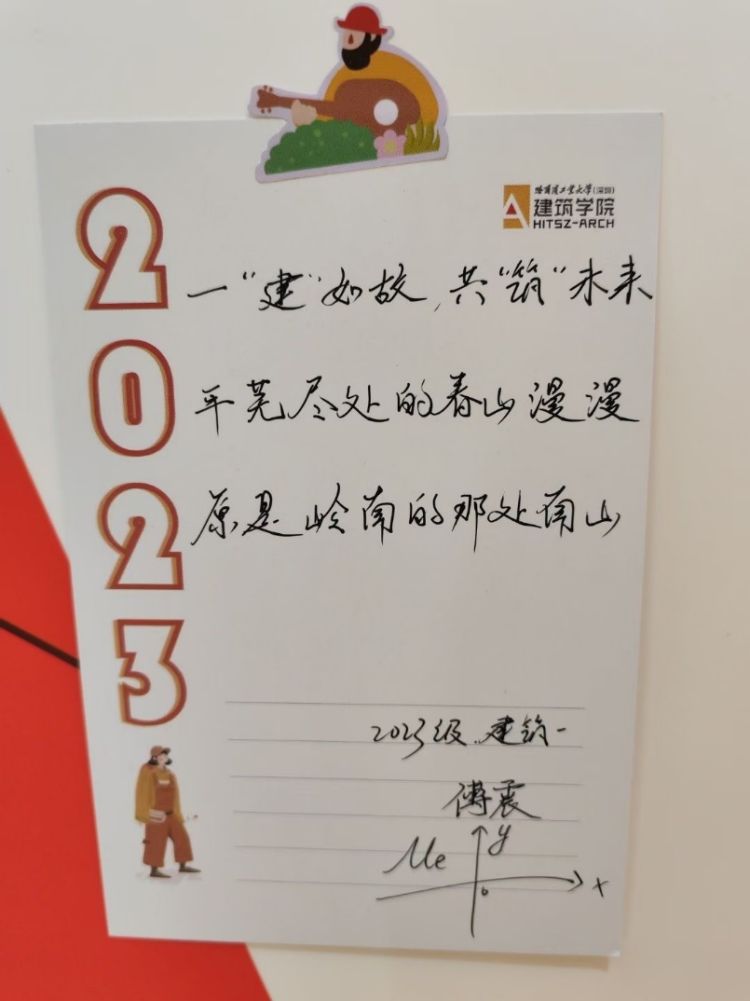 2023
哈尔滨工业大学(深圳)
建筑学院
HITSZ-ARCH
一“建”如故,共“筑”未来
平芜尽处的春山漫漫
原是岭南的那处南山
2023级.建筑一
傅震
Me
y
o
x